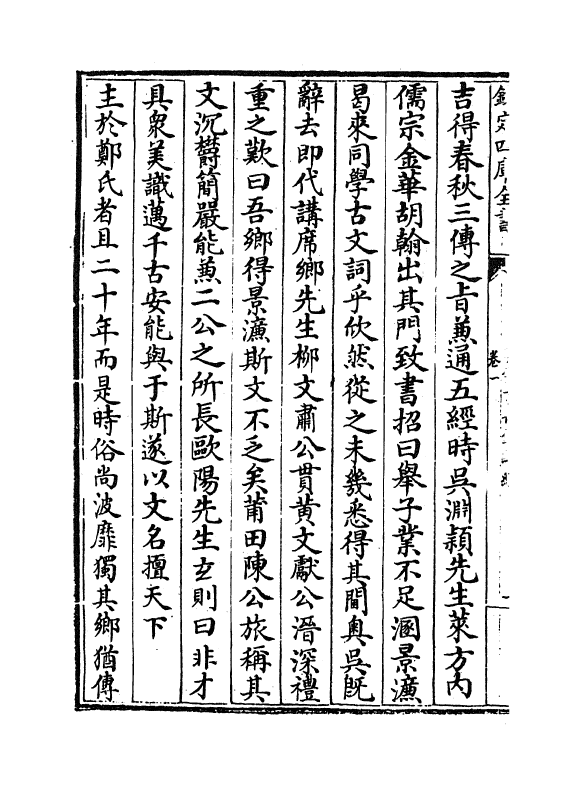 欽定四庫全書
卷一
吉得春秋三傳之旨兼通五經時吳淵穎先生萊方內
儒宗金華胡翰出其門致書招曰舉子業不足溷景濂
曷來同學古文詞乎欣然從之未幾悉得其閫奥吳既
辭去即代講席鄉先生栁文肅公貫黄文獻公溍深禮
重之歎曰吾鄉得景濂斯文不乏矣莆田陳公旅稱其
文沉欝簡嚴能兼二公之所長歐陽先生玄則曰非才
具衆美識邁千古安能與于斯遂以文名擅天下
主於鄭氏者且二十年而是時俗尚波靡獨其鄉猶傳